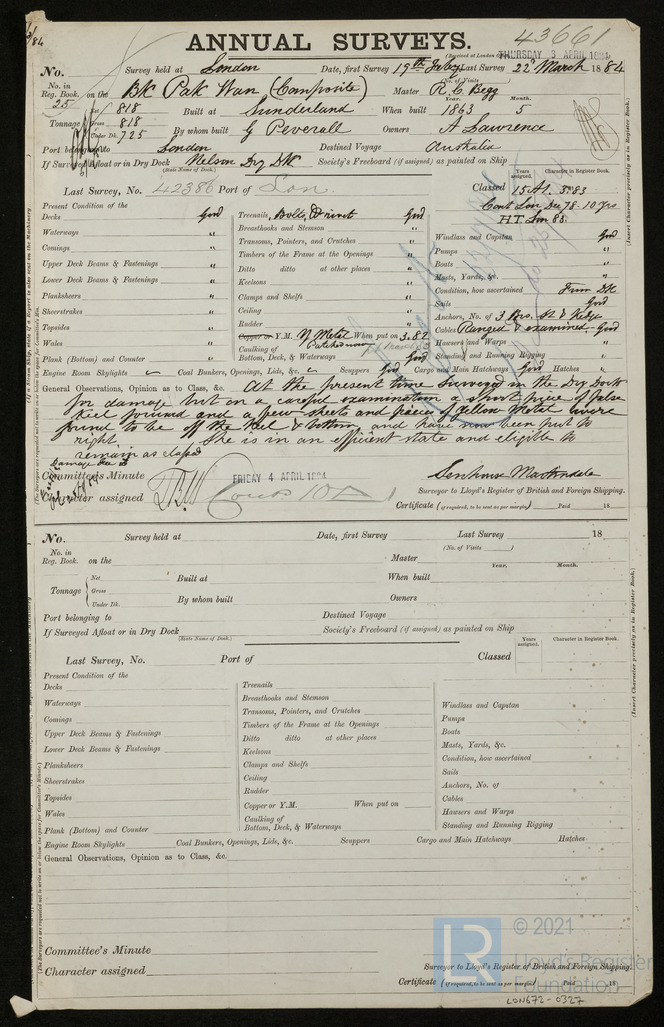 43661
ANNUAL SURVEYS.
(Received at London THURSDAY 3 APRIL 1884
No. Survey held at London Date, first Survey 19th Last Survey 22d March 1884
(No. of Visits )
No. in
Reg. Book. 25 on the Bk Pak Wan (Composite) Master R. C. Begg
Year. Month.
Tonnage Net 818 Built at Sunderland When built 1863 5
Gross 818
Under Dk. 725 By whom built G Peverall Owners A Lawrence
Port belonging to London Destined Voyage Australia
If Surveyed Afloat or in Dry Dock Nelson Dry Dk Society's Freeboard (if assigned) as painted on Ship
(State Name of Dock.)
Years assigned. Character in Register Book.
Last Survey, No. 42386 Port of Lon. Classed 15 A1. 3.83
Cont Lon Dec 78-10 Yrs
H.T. Lon 83.
Present Condition of the
Decks Good
Waterways "
Comings "
Upper Deck Beams & Fastenings "
Lower Deck Beams & Fastenings "
Planksheers "
Sheerstrakes "
Topsides "
Wales "
Plank (Bottom) and Counter "
Treenails, Bolts, Good
Breasthooks and Stemson "
Transoms, Pointers, and Crutches "
Timbers of the Frame at the Openings "
Ditto ditto at other places "
Keelsons "
Clamps and Shelfs "
Ceiling "
Rudder "
Copper or Y.M. Y Metal When put on 3.82
Caulking of
Bottom, Deck, & Waterways Good
Windlass and Capstan Good
Pumps "
Boats "
Masts, Yards, &c. "
Condition, how ascertained From Dk
Sails Good
Anchors, No. of 3 Bro. St & Kedge
Cables Ranged & examined - Good
Hawsers and Warps "
Standing and Running Rigging "
Engine Room Skylights Coal Bunkers, Openings, Lids, &c. Scuppers Good Cargo and Main Hatchways Good Hatches "
General Observations, Opinion as to Class, &c. At the present time surveyed in the Dry Dock
for damage but on a careful examination a short piece of false
keel forward and a few sheets and pieces of Yellow Metal were
found to be off the keel & bottom and have now been put to
right. She is in an efficient state and eligible to
remain as classed
Committee's Minute FRIDAY 4 APRIL 1884
Character assigned
Surveyor to Lloyd's Register of British and Foreign Shipping.
Certificate (if required, to be sent as per margin) Paid 18
No. Survey held at Date, first Survey Last Survey 18
(No. of Visits )
No. in
Reg. Book. on the Master
Year. Month.
Tonnage Net Built at When built
Gross
Under Dk. By whom built Owners
Port belonging to Destined Voyage
If Surveyed Afloat or in Dry Dock Society's Freeboard (if assigned) as painted on Ship
(State Name of Dock.)
Years assigned. Character in Register Book.
Last Survey, No. Port of Classed
Present Condition of the
Decks
Waterways
Comings
Upper Deck Beams & Fastenings
Lower Deck Beams & Fastenings
Planksheers
Sheerstrakes
Topsides
Wales
Plank (Bottom) and Counter
Treenails
Breasthooks and Stemson
Transoms, Pointers, and Crutches
Timbers of the Frame at the Openings
Ditto ditto at other places
Keelsons
Clamps and Shelfs
Ceiling
Rudder
Copper or Y.M. When put on
Caulking of
Bottom, Deck, & Waterways
Windlass and Capstan
Pumps
Boats
Masts, Yards, &c.
Condition, how ascertained
Sails
Anchors, No. of
Cables
Hawsers and Warps
Standing and Running Rigging
Engine Room Skylights Coal Bunkers, Openings, Lids, &c. Scuppers Cargo and Main Hatchways Hatches
General Observations, Opinion as to Class, &c.
Committee's Minute
Character assigned
Surveyor to Lloyd's Register of British and Foreign Shipping.
Certificate (if required, to be sent as per margin) Paid 18
LR © 2021
Lloyd's Register
Foundation
LON672-0327
(Insert Character precisely as in Register Book.)
(Insert Character precisely as in Register Book.)